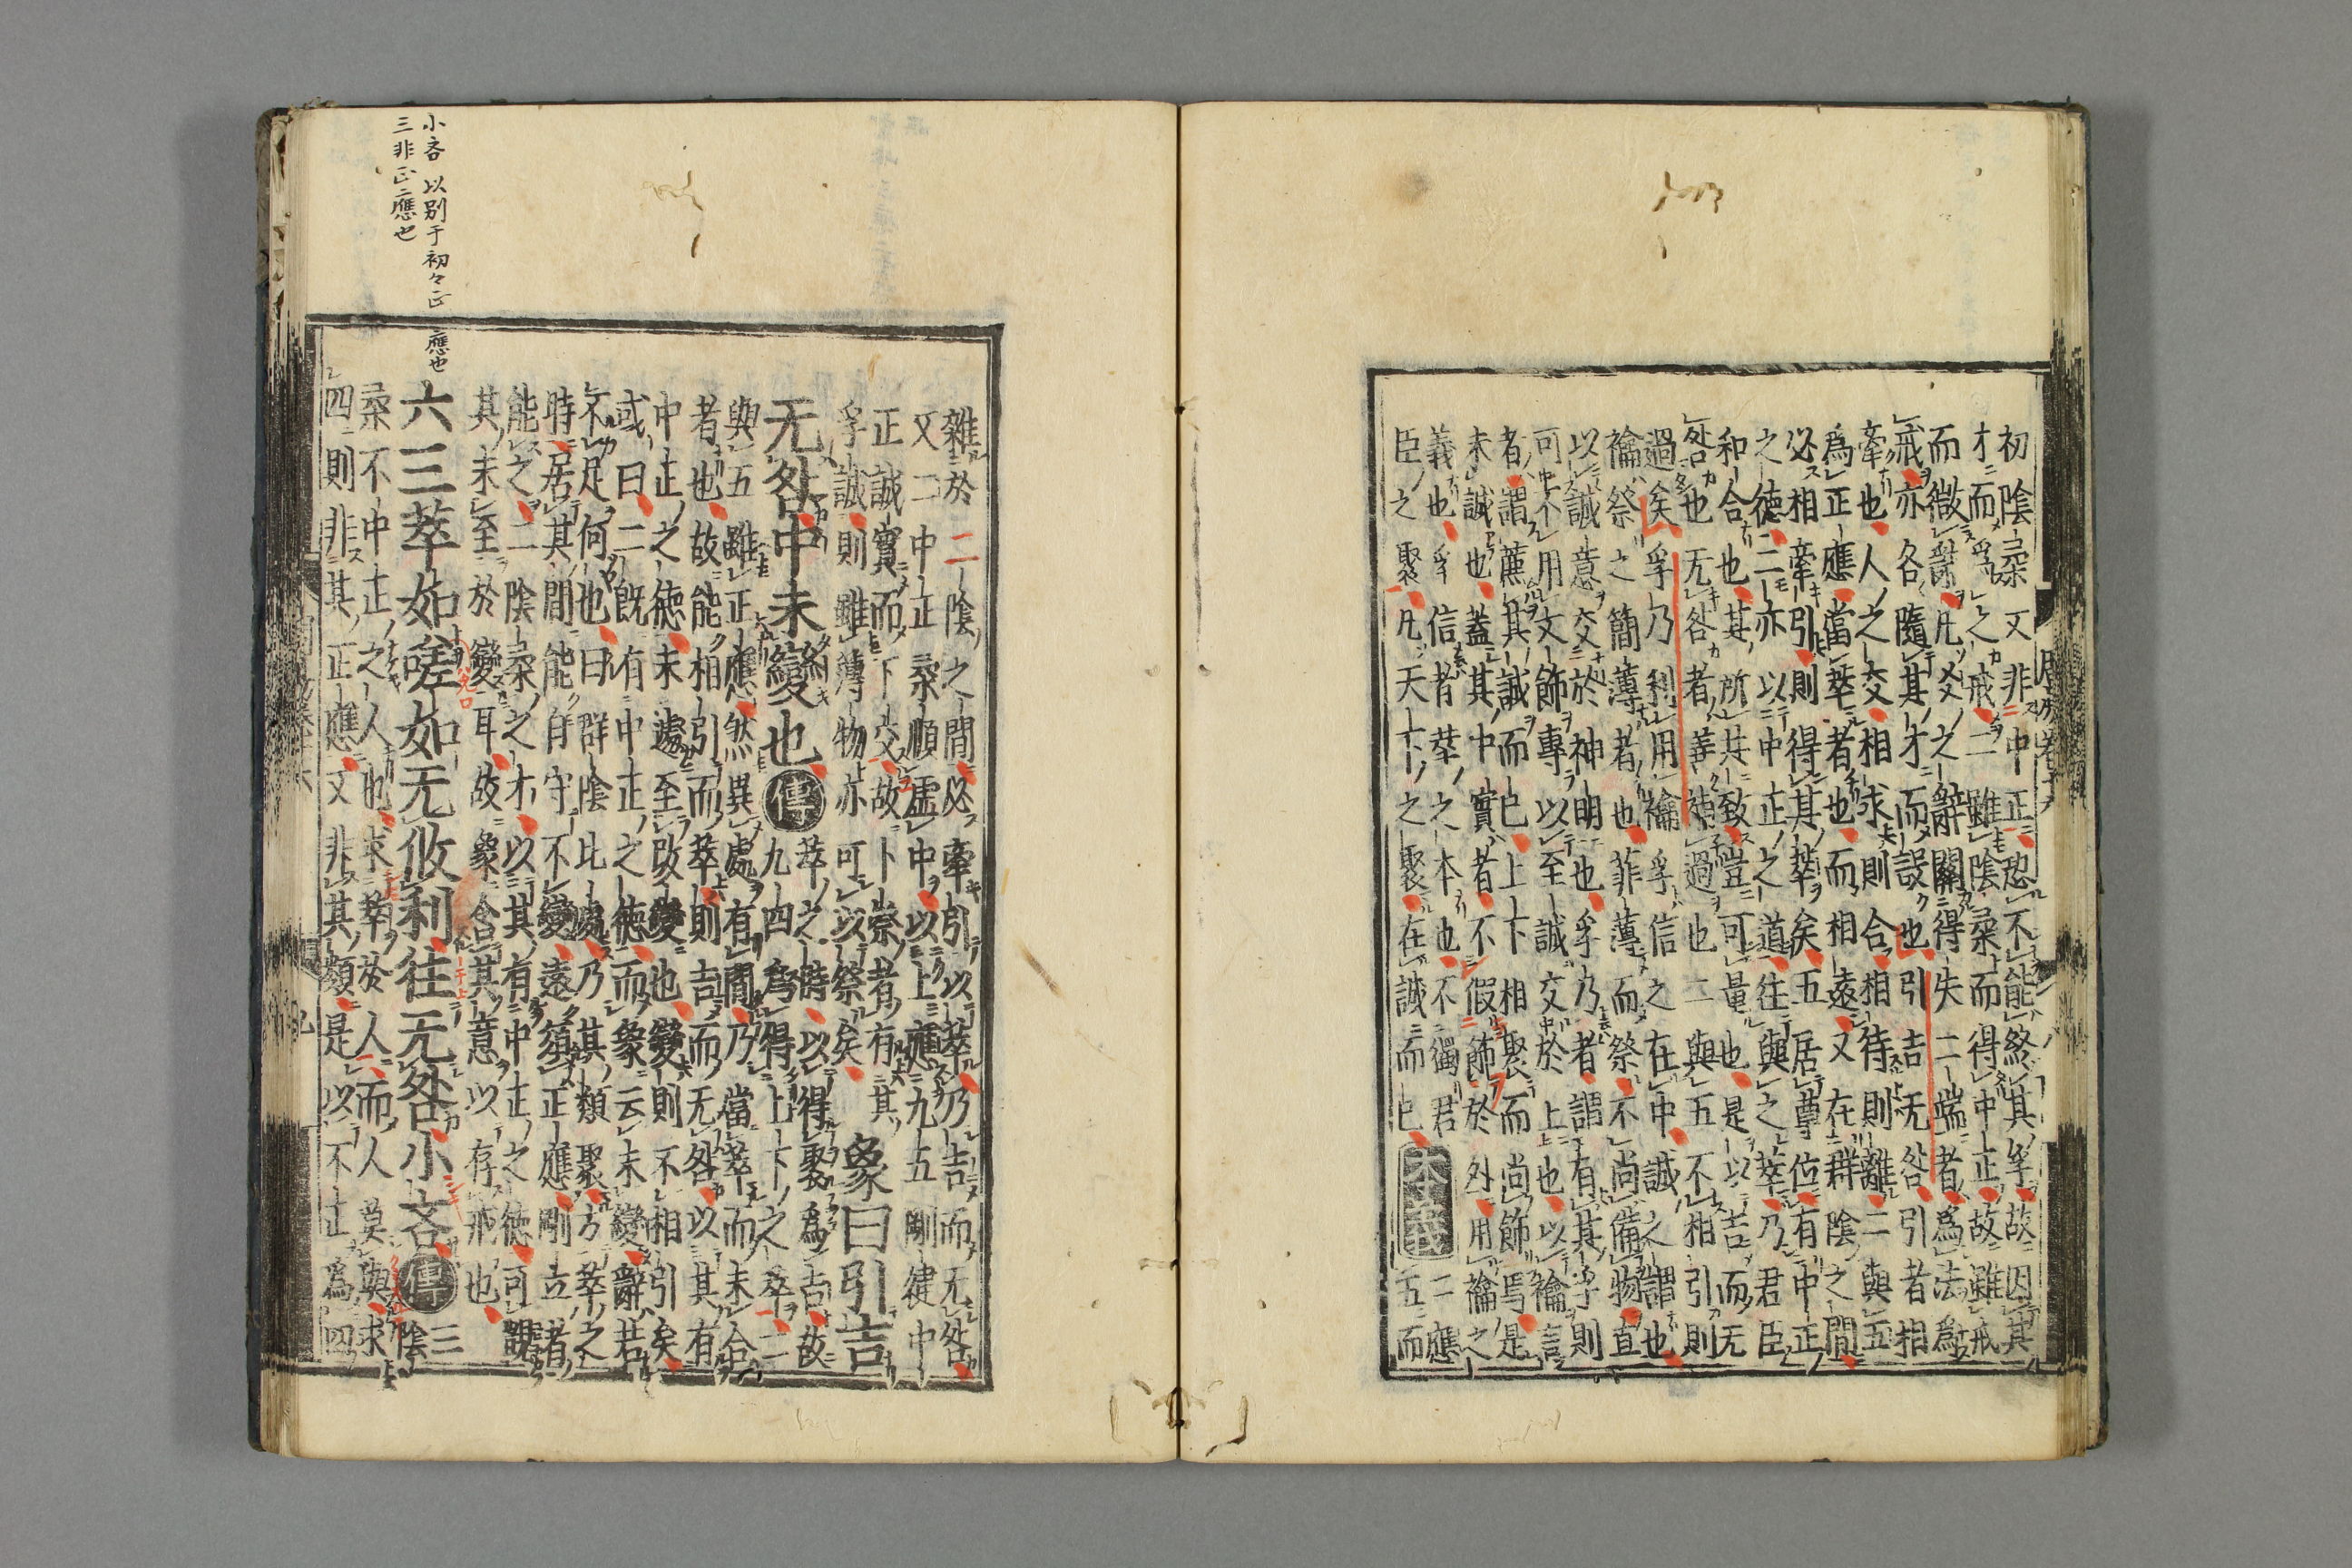 初陰柔又非中正恐不能終其孚故因其
才而爲之戒二雖陰柔而得中正故雖戒
而微辭凡爻之辭關得失二端者爲法爲
戒亦各隨其才而設也引吉无咎引者相
牽也人之交相求則合相待則離二與五
爲正應當萃者也而相遠又在群陰之間
必相牽引則得其萃矣五居尊位有中正
之德二亦以中正之道往與之萃乃君臣
和合也其所共致豈可量也是以吉而无
咎也无咎者善補過也二與五不相引則
過矣孚乃利用禴孚信之在中誠之謂也
禴祭之簡薄者也菲薄而祭不尚備物直
以誠意交於神明也孚乃者謂有其孚則
可不用文飾專以至誠交於上也以禴言
者謂薦其誠而已上下相聚而尚飾焉是
未誠也蓋其中實者不假飾於外用禴之
義也孚信者萃之本也不獨君
臣之聚凡天下之聚在誠而已
本義
二應
五而
雜於二陰之間必牽引以萃乃吉而无咎
又二中正柔順虛中以上應九五剛健中
正誠實而下交故卜祭者有其
孚誠則雖薄物亦可以祭矣
象曰引吉
无咎中未變也
傳
萃之時以得聚爲吉故
九四爲得上下之萃二
與五雖正應然異處有間乃當萃而未合
者也故能相引而萃則吉而无咎以其有
中正之德未遽至改變也變則不相引矣
或曰二既有中正之德而象云未變辭若
不足何也曰群陰比處乃其類聚方萃之
時居其間能自守不變遠須正應剛立者
能之二陰柔之才以其有中正之德可覬
其未至於變耳故象含其意以存戒也
六三萃如嗟如无攸利往无咎小吝
傳
三
陰
柔不中正之人也求萃於人而人莫與求
四則非其正應又非其類是以不正爲四
小吝 以別于初々正 應也
三非正二應也